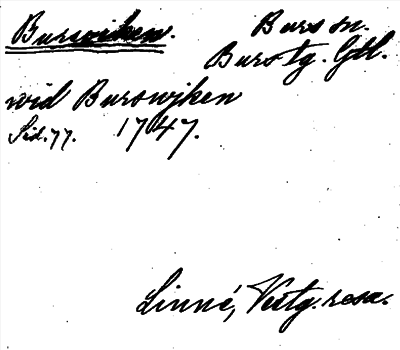 Burswiken.
Burs sn.
Burs tg. Gtl.
wid Burswjken
Sid. 77. 1747.
Linné, Västg. resa.